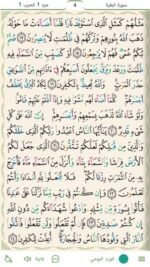 سورة البقرة 4 جزء 1 الحزب 1
مَثَلُهُمْ كَمَثَلِ ٱلَّذِى ٱسْتَوْقَدَ نَارًا فَلَمَّآ أَضَآءَتْ مَا حَوْلَهُۥ
ذَهَبَ ٱللَّهُ بِنُورِهِمْ وَتَرَكَهُمْ فِى ظُلُمَٰتٍ لَّا يُبْصِرُونَ ١٧ صُمٌّۢ
بُكْمٌ عُمْىٌ فَهُمْ لَا يَرْجِعُونَ ١٨ أَوْ كَصَيِّبٍ مِّنَ ٱلسَّمَآءِ فِيهِ
ظُلُمَٰتٌ وَرَعْدٌ وَبَرْقٌ يَجْعَلُونَ أَصَٰبِعَهُمْ فِىٓ ءَاذَانِهِم مِّنَ ٱلصَّوَٰعِقِ
حَذَرَ ٱلْمَوْتِ وَٱللَّهُ مُحِيطٌۢ بِٱلْكَٰفِرِينَ ١٩ يَكَادُ ٱلْبَرْقُ يَخْطَفُ
أَبْصَٰرَهُمْ كُلَّمَآ أَضَآءَ لَهُم مَّشَوْا۟ فِيهِ وَإِذَآ أَظْلَمَ عَلَيْهِمْ قَامُوا۟
وَلَوْ شَآءَ ٱللَّهُ لَذَهَبَ بِسَمْعِهِمْ وَأَبْصَٰرِهِمْ إِنَّ ٱللَّهَ عَلَىٰ كُلِّ
شَىْءٍ قَدِيرٌ ٢٠ يَٰٓأَيُّهَا ٱلنَّاسُ ٱعْبُدُوا۟ رَبَّكُمُ ٱلَّذِى خَلَقَكُمْ وَٱلَّذِينَ
مِن قَبْلِكُمْ لَعَلَّكُمْ تَتَّقُونَ ٢١ ٱلَّذِى جَعَلَ لَكُمُ ٱلْأَرْضَ
فِرَٰشًا وَٱلسَّمَآءَ بِنَآءً وَأَنزَلَ مِنَ ٱلسَّمَآءِ مَآءً فَأَخْرَجَ بِهِۦ مِنَ
ٱلثَّمَرَٰتِ رِزْقًا لَّكُمْ فَلَا تَجْعَلُوا۟ لِلَّهِ أَندَادًا وَأَنتُمْ
تَعْلَمُونَ ٢٢ وَإِن كُنتُمْ فِى رَيْبٍ مِّمَّا نَزَّلْنَا عَلَىٰ عَبْدِنَا
فَأْتُوا۟ بِسُورَةٍ مِّن مِّثْلِهِۦ وَٱدْعُوا۟ شُهَدَآءَكُم مِّن دُونِ ٱللَّهِ
إِن كُنتُمْ صَٰدِقِينَ ٢٣ فَإِن لَّمْ تَفْعَلُوا۟ وَلَن تَفْعَلُوا۟ فَٱتَّقُوا۟
ٱلنَّارَ ٱلَّتِى وَقُودُهَا ٱلنَّاسُ وَٱلْحِجَارَةُ أُعِدَّتْ لِلْكَٰفِرِينَ ٢٤
الورد اليومي تلاوة